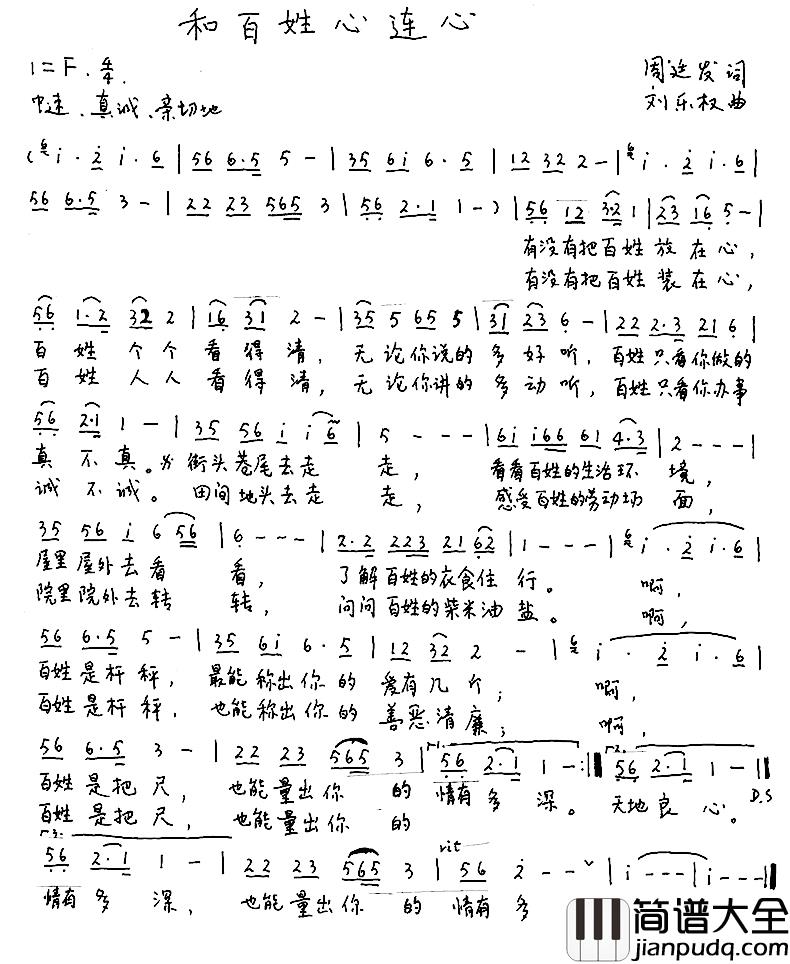 和百姓心连心
1=F 4/4
中速、真诚、亲切地
周廷发词
刘乐权曲
(i·2 i·6 | 56 6·5 5 - | 35 6i 6·5 | 12 32 2 - | i·2 i·6 |
56 6·5 3 - | 22 23 565 3 | 56 2·1 1 -) | 56 12 3·2 1 | 23 16 5 - |
有没有把百姓放在心，
有没有把百姓装在心，
56 1·2 32 2 | 16 31 2 - | 35 5 65 5 | 31 23 6 - | 22 2·3 21 6 |
百姓个个看得清，无论你说的多好听，百姓只看你做的
百姓人人看得清，无论你讲的多动听，百姓只看你办事
56 2·1 1 - | 35 56 i i 6 | 5 - - - | 6i i66 61 4·3 | 2 - - - |
真不真。街头巷尾去走走，看看百姓的生活环境，
诚不诚。田间地头去走走，感受百姓的劳动场面，
35 56 i 6 56 | 6 - - - | 2·2 223 21 62 | 1 - - - | i·2 i·6 |
屋里屋外去看看，了解百姓的衣食住行。啊，
院里院外去转转，问问百姓的柴米油盐。啊，
56 6·5 5 - | 35 6i 6·5 | 12 32 2 - | i·2 i·6 |
百姓是杆秤，最能称出你的爱有几个；啊，
百姓是杆秤，也能称出你的善恶清廉；啊，
56 6·5 3 - | 22 23 565 3 | 56 2·1 1 - :‖ 56 2·1 1 - ‖
百姓是把尺，也能量出你的情有多深。天地良心。D.S
百姓是把尺，也能量出你的
56 2·1 1 - | 22 23 565 3 | rit 56 2 - - | i - - - | i - - ‖
情有多深，也能量出你的情有多
简谱大全
jianpudq.com